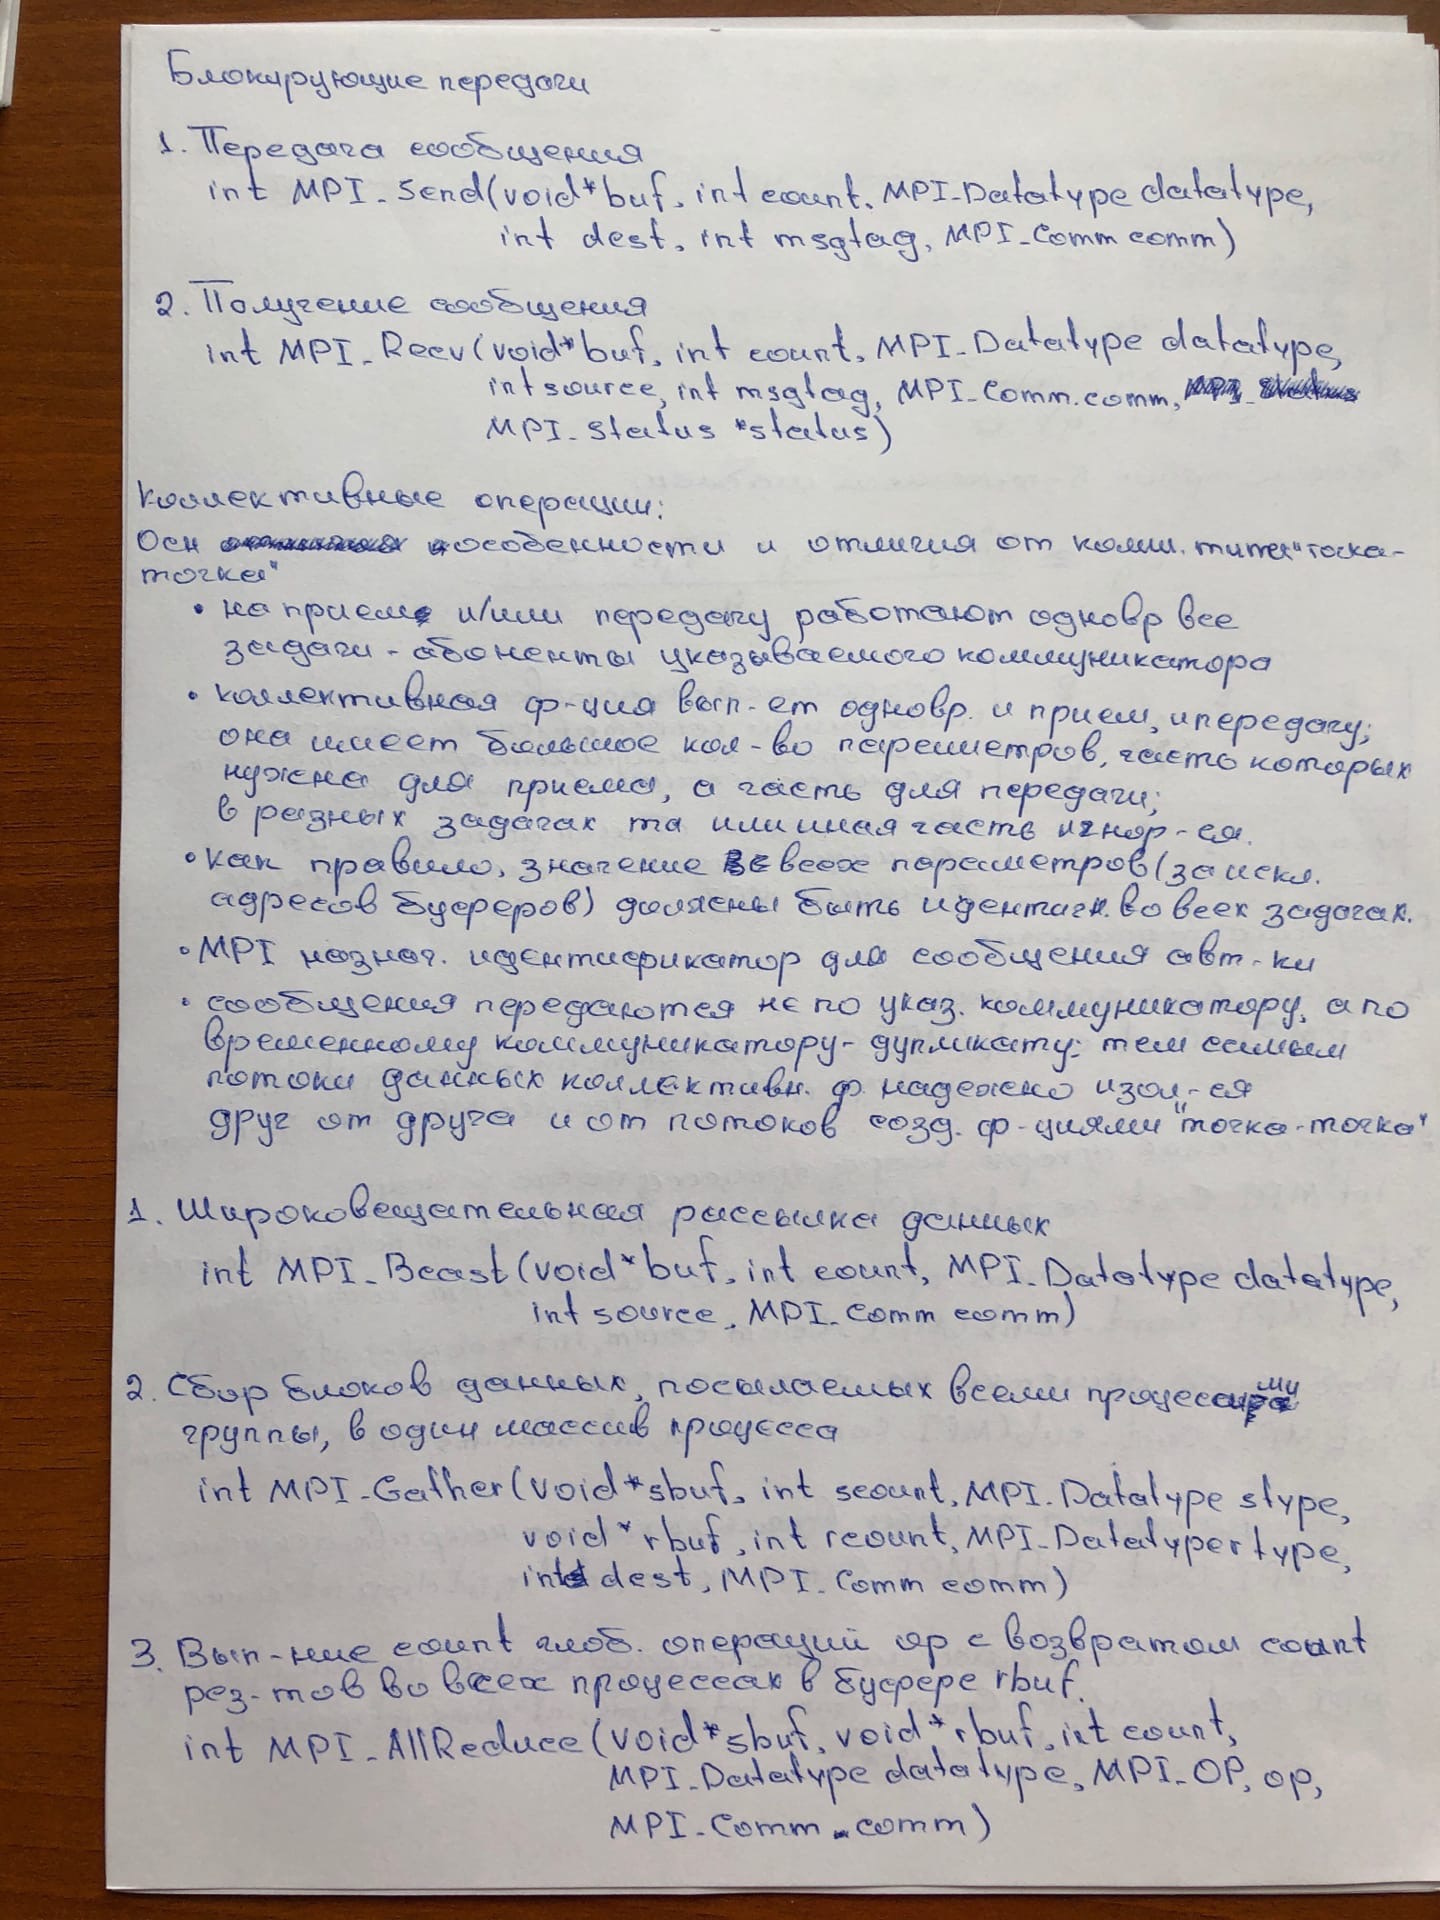 Блокирующие передачи
1. Передача сообщения
int MPI_Send(void*buf, int count, MPI_Datatype datatype,
int dest, int msgtag, MPI_Comm comm)
2. Получение сообщения
int MPI_Recv(void*buf, int count, MPI_Datatype datatype,
int source, int msgtag, MPI_Comm comm,
MPI_Status *status)
Коллективные операции:
Осн особенности и отличия от комм. типа "точка-
точка"
• на прием и/или передачу работают одновр все
задачи-абоненты указываемого коммуникатора
• коллективная ф-ция вып-ет одновр. и прием, и передачу;
она имеет большое кол-во параметров, часть которых
нужна для приема, а часть для передачи;
в разных задачах та или иная часть игнор-ся.
• как правило, значение всех параметров (за искл.
адресов буферов) должны быть идентичн. во всех задачах.
• MPI назнач. идентификатор для сообщения авт-ки
• сообщения передаются не по указ. коммуникатору, а по
временному коммуникатору-дупликату; тем самым
потоки данных коллективн. ф. надежно изол-ся
друг от друга и от потоков созд. ф-циями "точка-точка"
1. Широковещательная рассылка данных
int MPI_Bcast(void*buf, int count, MPI_Datatype datatype,
int source, MPI_Comm comm)
2. Сбор блоков данных, посылаемых всеми процессами
группы, в один массив процесса
int MPI_Gather(void*sbuf, int scount, MPI_Datatype stype,
void*rbuf, int rcount, MPI_Datatype rtype,
int dest, MPI_Comm comm)
3. Вып-ние count глоб. операций op с возвратом count
рез-тов во всех процессах в буфере rbuf.
int MPI_AllReduce(void*sbuf, void*rbuf, int count,
MPI_Datatype datatype, MPI_OP, op,
MPI_Comm comm)